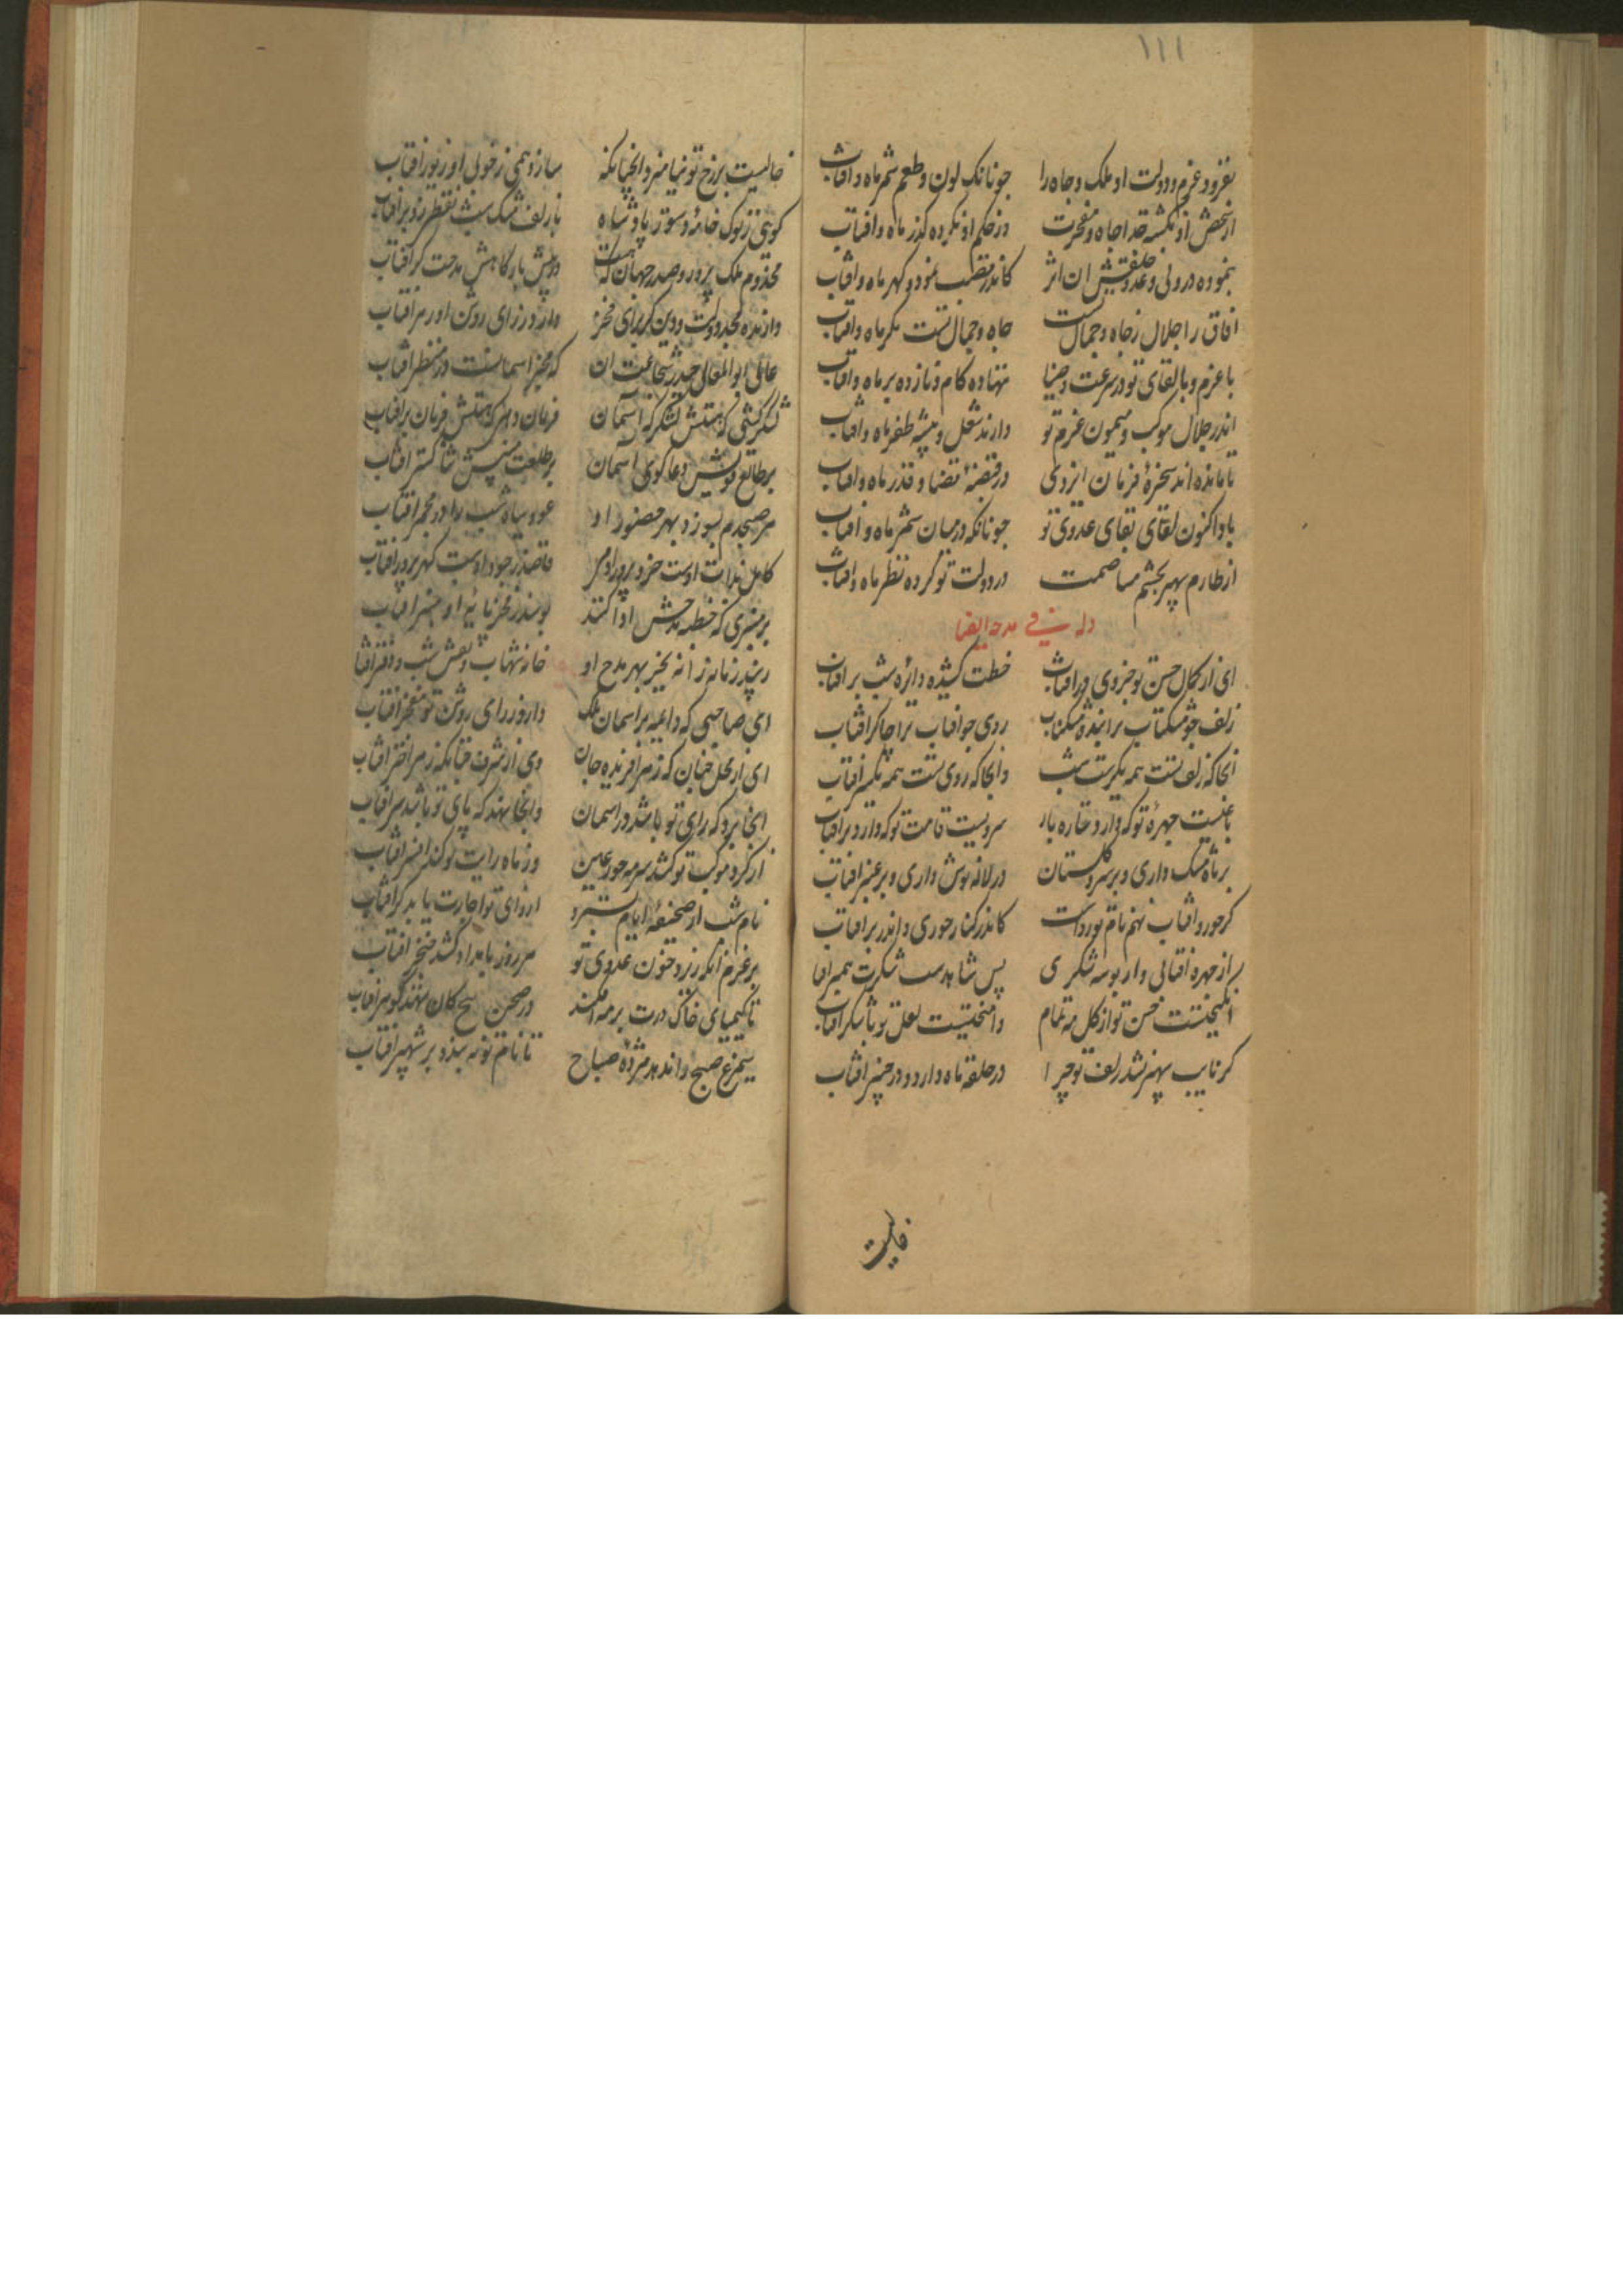 ۱۱۱
بفزود عزم و دولت او ملک و جاه را جونانک لون و طعم ثمر ماه و افتاب
از شخص او نکشته جدا جاه و مفخرت وز حکم او نکرده کذر ماه و افتاب
بنموده در ولی و عدو خلقتش ان اثر کاندر قصب نمود و کهر ماه و افتاب
افاق را جلال ز جاه و جمال تست جاه و جمال تست مکر ماه و افتاب
با عزم و با لقای تو در سرعت و ضیا ننهاده کام و نازده بر ماه و افتاب
اندر جلال موکب و میمون عزم تو دارند شغل و پیشه ظفر ماه و افتاب
تا مانده اند سخره فرمان ایزدی در قبضه قضا و قدر ماه و افتاب
بادا کنون لقای بقای عدوی تو جونانکه در میان شمر ماه و افتاب
از طارم سپهر بچشم مناصمت در دولت تو کرده نظر ماه و افتاب
وله فی مدحه ایضا
ای از کمال حسن تو جزوی در افتاب خطت کشیده دایره شب بر افتاب
زلف جو مشکناب ترا بنده مشکناب روی جو افتاب ترا چاکر افتاب
انجا که زلف تست همه یکسرست شب وانجا که روی تست همه یکسر افتاب
باغیست چهره تو که دارد ستاره بار سرویست قامت تو که دارد بر افتاب
بر ماه مشک داری و بر سرو کلستان در لاله نوش داری و بر عنبر افتاب
کر حور و افتاب نهم نام تو رواست کاندر کنار حوری و اندر بر افتاب
از چهره افتابی و از بوسه شکری بس شاهدست شکرت همبر افتاب
انکیختست حسن تو از کل مه تمام وامیختست لعل تو با شکر افتاب
کر نایب سپهر نشد زلف تو چرا در حلقه ماه دارد و در چنبر افتاب
خالیست
خالیست بر رخ تو بنامیزد انچنانکه سازد همی ز خوبی او زیور افتاب
کویی ز نوک خامه دستور پادشاه بر زلف مشک شب نقطه زد بر افتاب
مخدوم ملک پرور و صدر جهان که هست در پیش بارکاهش مدحت کر افتاب
دارنده مجد دولت و دین کز برای فخر دارد ز رای روشن او رهبر افتاب
عالی ابوالمعالی حیدر شجاعت ان که مخبر اسمانست و ز منظر افتاب
لشکر کشی که هستش لشکرکه اسمان فرمان دهی که هستش فرمان بر افتاب
بر طالع دعا کوی اسمان بر طلعت ثنا کستر افتاب
هر صبحدم بسوزد بهر حضور او عود سیاه شب را در مجمر افتاب
کامل ز ذات اوست خرد پرور ادمی قاصد ز جود اوست کهر پرور افتاب
بر منبری که خطبه مدحش ادا کنند بوسد ز فخر پایه او منبر افتاب
زیبد زمانه را ز بهر مدح او خامه شهاب و نقش شب و دفتر افتاب
ای صاحبی که دایم بر اسمان ملک دارد ز رای روشن تو مفخر افتاب
ای از محل چنان که ز هر افریده جان وی از شرف چنانکه ز هر اختر افتاب
انجا برد که رای تو باشد دور اسمان وانجا نهد که پای تو باشد سر افتاب
از کرد موکب تو کشد سرمه حور عین وز ماه رایت تو کند افسر افتاب
نام شب از صحیفه ایام بسترد از رای تو اجازت یابد کر افتاب
بر عزم انکه ریزد خون عدوی تو هر روز بامداد کشد خنجر افتاب
تا کیمیای خاک درت بر مه افکند در صحن هیچ کان ننهد کوهر افتاب
سیمرغ صبح را ندهد مژده صباح تا نام تو نبندد بر شهپر افتاب